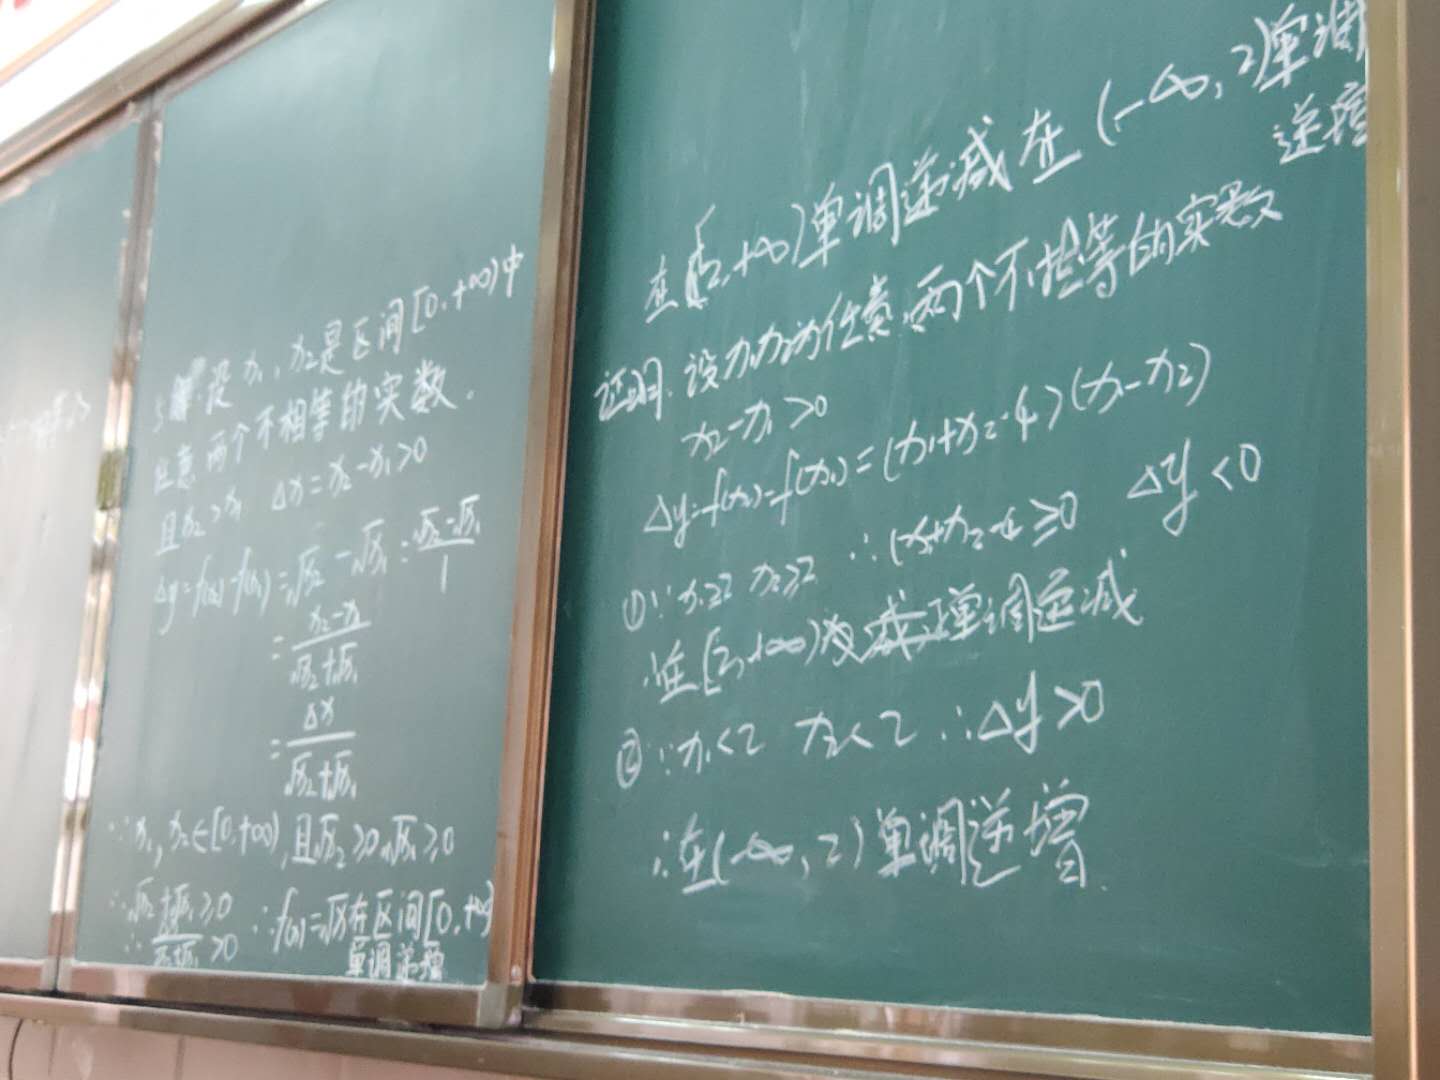 设x₁,x₂是区间[0,+∞)中
任意两个不相等的实数.
且x₂>x₁ Δx=x₂-x₁>0
Δy=f(x₂)-f(x₁)=√x₂-√x₁=(√x₂-√x₁)/1
=(x₂-x₁)/(√x₂+√x₁)
=Δx/(√x₂+√x₁)
∵x₁,x₂∈[0,+∞),且√x₂≥0,√x₁≥0
∴√x₂+√x₁≥0
∴Δx/(√x₂+√x₁)>0 ∴f(x)=√x在区间[0,+∞)
单调递增
在[2,+∞)单调递减在(-∞,2)单调
递增
证明:设x₁x₂为任意两个不相等的实数
x₂-x₁>0
Δy=f(x₂)-f(x₁)=(x₁+x₂-4)(x₁-x₂)
①∵x₁≥2 x₂≥2 ∴(x₁+x₂-4)≥0 Δy<0
∴在[2,+∞)单调递减
②∵x₁<2 x₂<2 ∴Δy>0
∴在(-∞,2)单调递增.